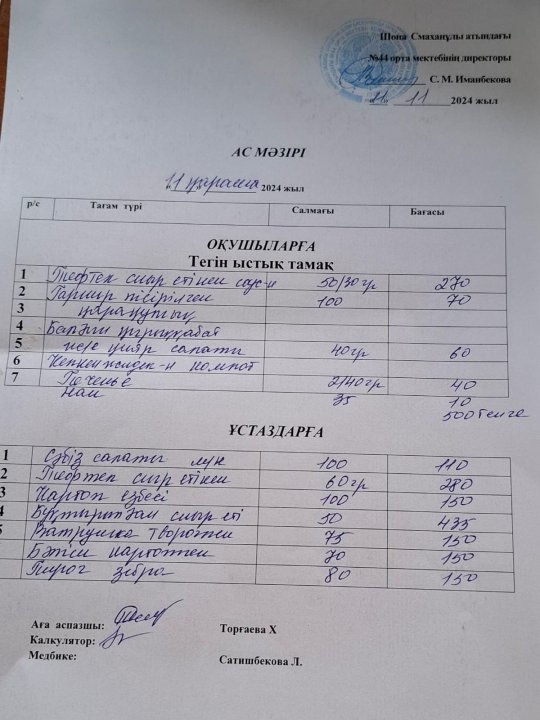 Шона Смаханұлы атындағы
№44 орта мектебінің директоры
С. М. Иманбекова
21. 11 2024 жыл
АС МӘЗІРІ
"11" қараша 2024 жыл
р/с Тағам түрі Салмағы Бағасы
ОҚУШЫЛАРҒА
Тегін ыстық тамақ
1 Тефтек сиыр етінен соус-н 50/30гр 270
2 Гарнир пісірілген 100 70
3 қарақұмық
4 Балғын қырыққабат
5 және қияр салаты 40гр 60
6 Кепкен жидек-н компот
7 Печенье 2/40гр 40
Нан 35 10
500 тенге
ҰСТАЗДАРҒА
1 Сәбіз салаты лук 100 110
2 Тефтек сиыр етінен 60гр 280
3 Картоп езбесі 100 150
4 Бұқтырылған сиыр еті 50 435
5 Ватрушка творогпен 75 150
Бәліш картоппен 70 150
Пирог зебра 80 150
Аға аспазшы: Торғаева Х
Калкулятор:
Медбике: Сатишбекова Л.